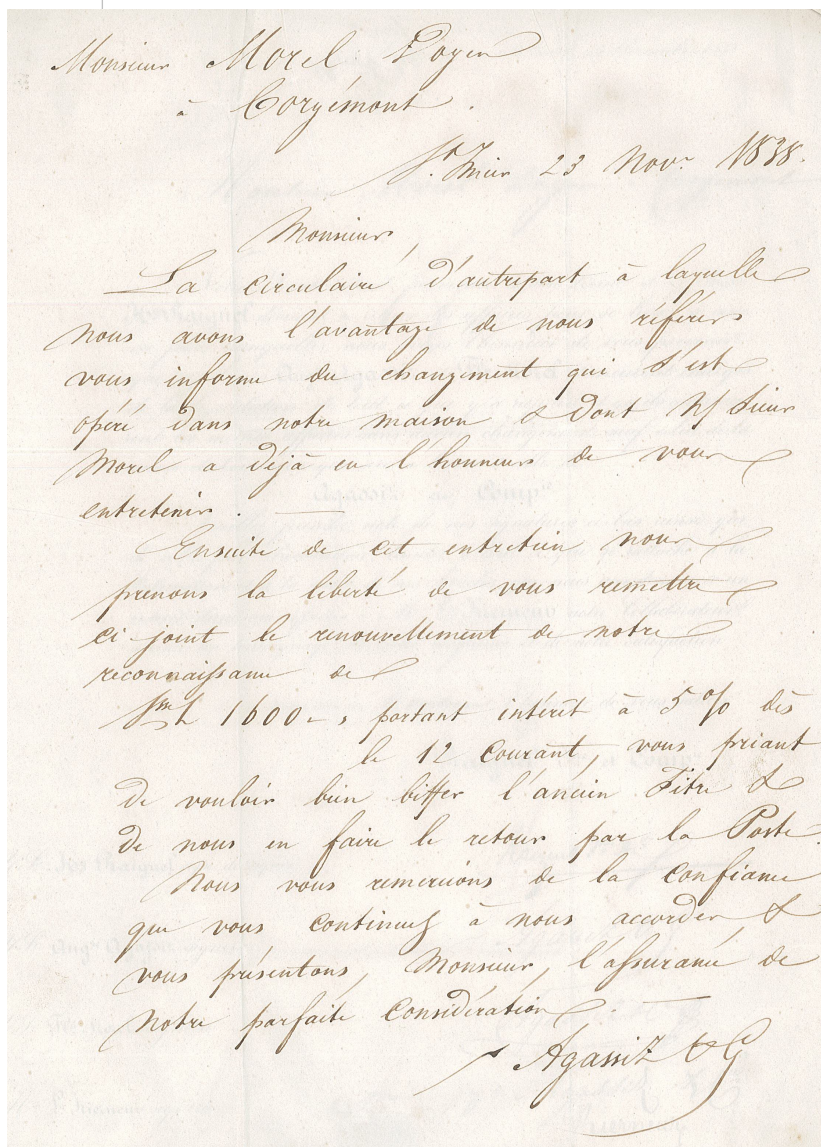 Monsieur Morel Doyen
à Corgémont.
St. Imier 23 Novr. 1838.
Monsieur,
La circulaire d'autrepart à laquelle
nous avons l'avantage de nous référer
vous informe du changement qui s'est
opéré dans notre maison & dont n/ Sieur
Morel a déjà eu l'honneur de vous
entretenir.
Ensuite de cet entretien nous
prenons la liberté de vous remettre
ci joint le renouvellement de notre
reconnaissance de
1600 portant intérêt à 5% dès
le 12 courant, vous priant
de vouloir bien biffer l'ancien Titre &
de nous en faire le retour par la Poste.
Nous vous remercions de la confiance
que vous continuez à nous accorder &
vous présentons, Monsieur, l'assurance de
notre parfaite considération.
Agassiz & Co